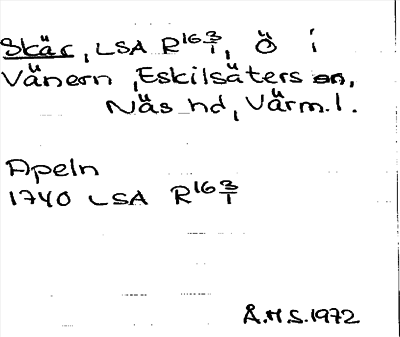 Skär, LSA R16 3/1, Ö i
Vänern, Eskilsäters sn,
Näs hd, Värml.
Apeln
1740 LSA R16 3/1
Å.H.S. 1972